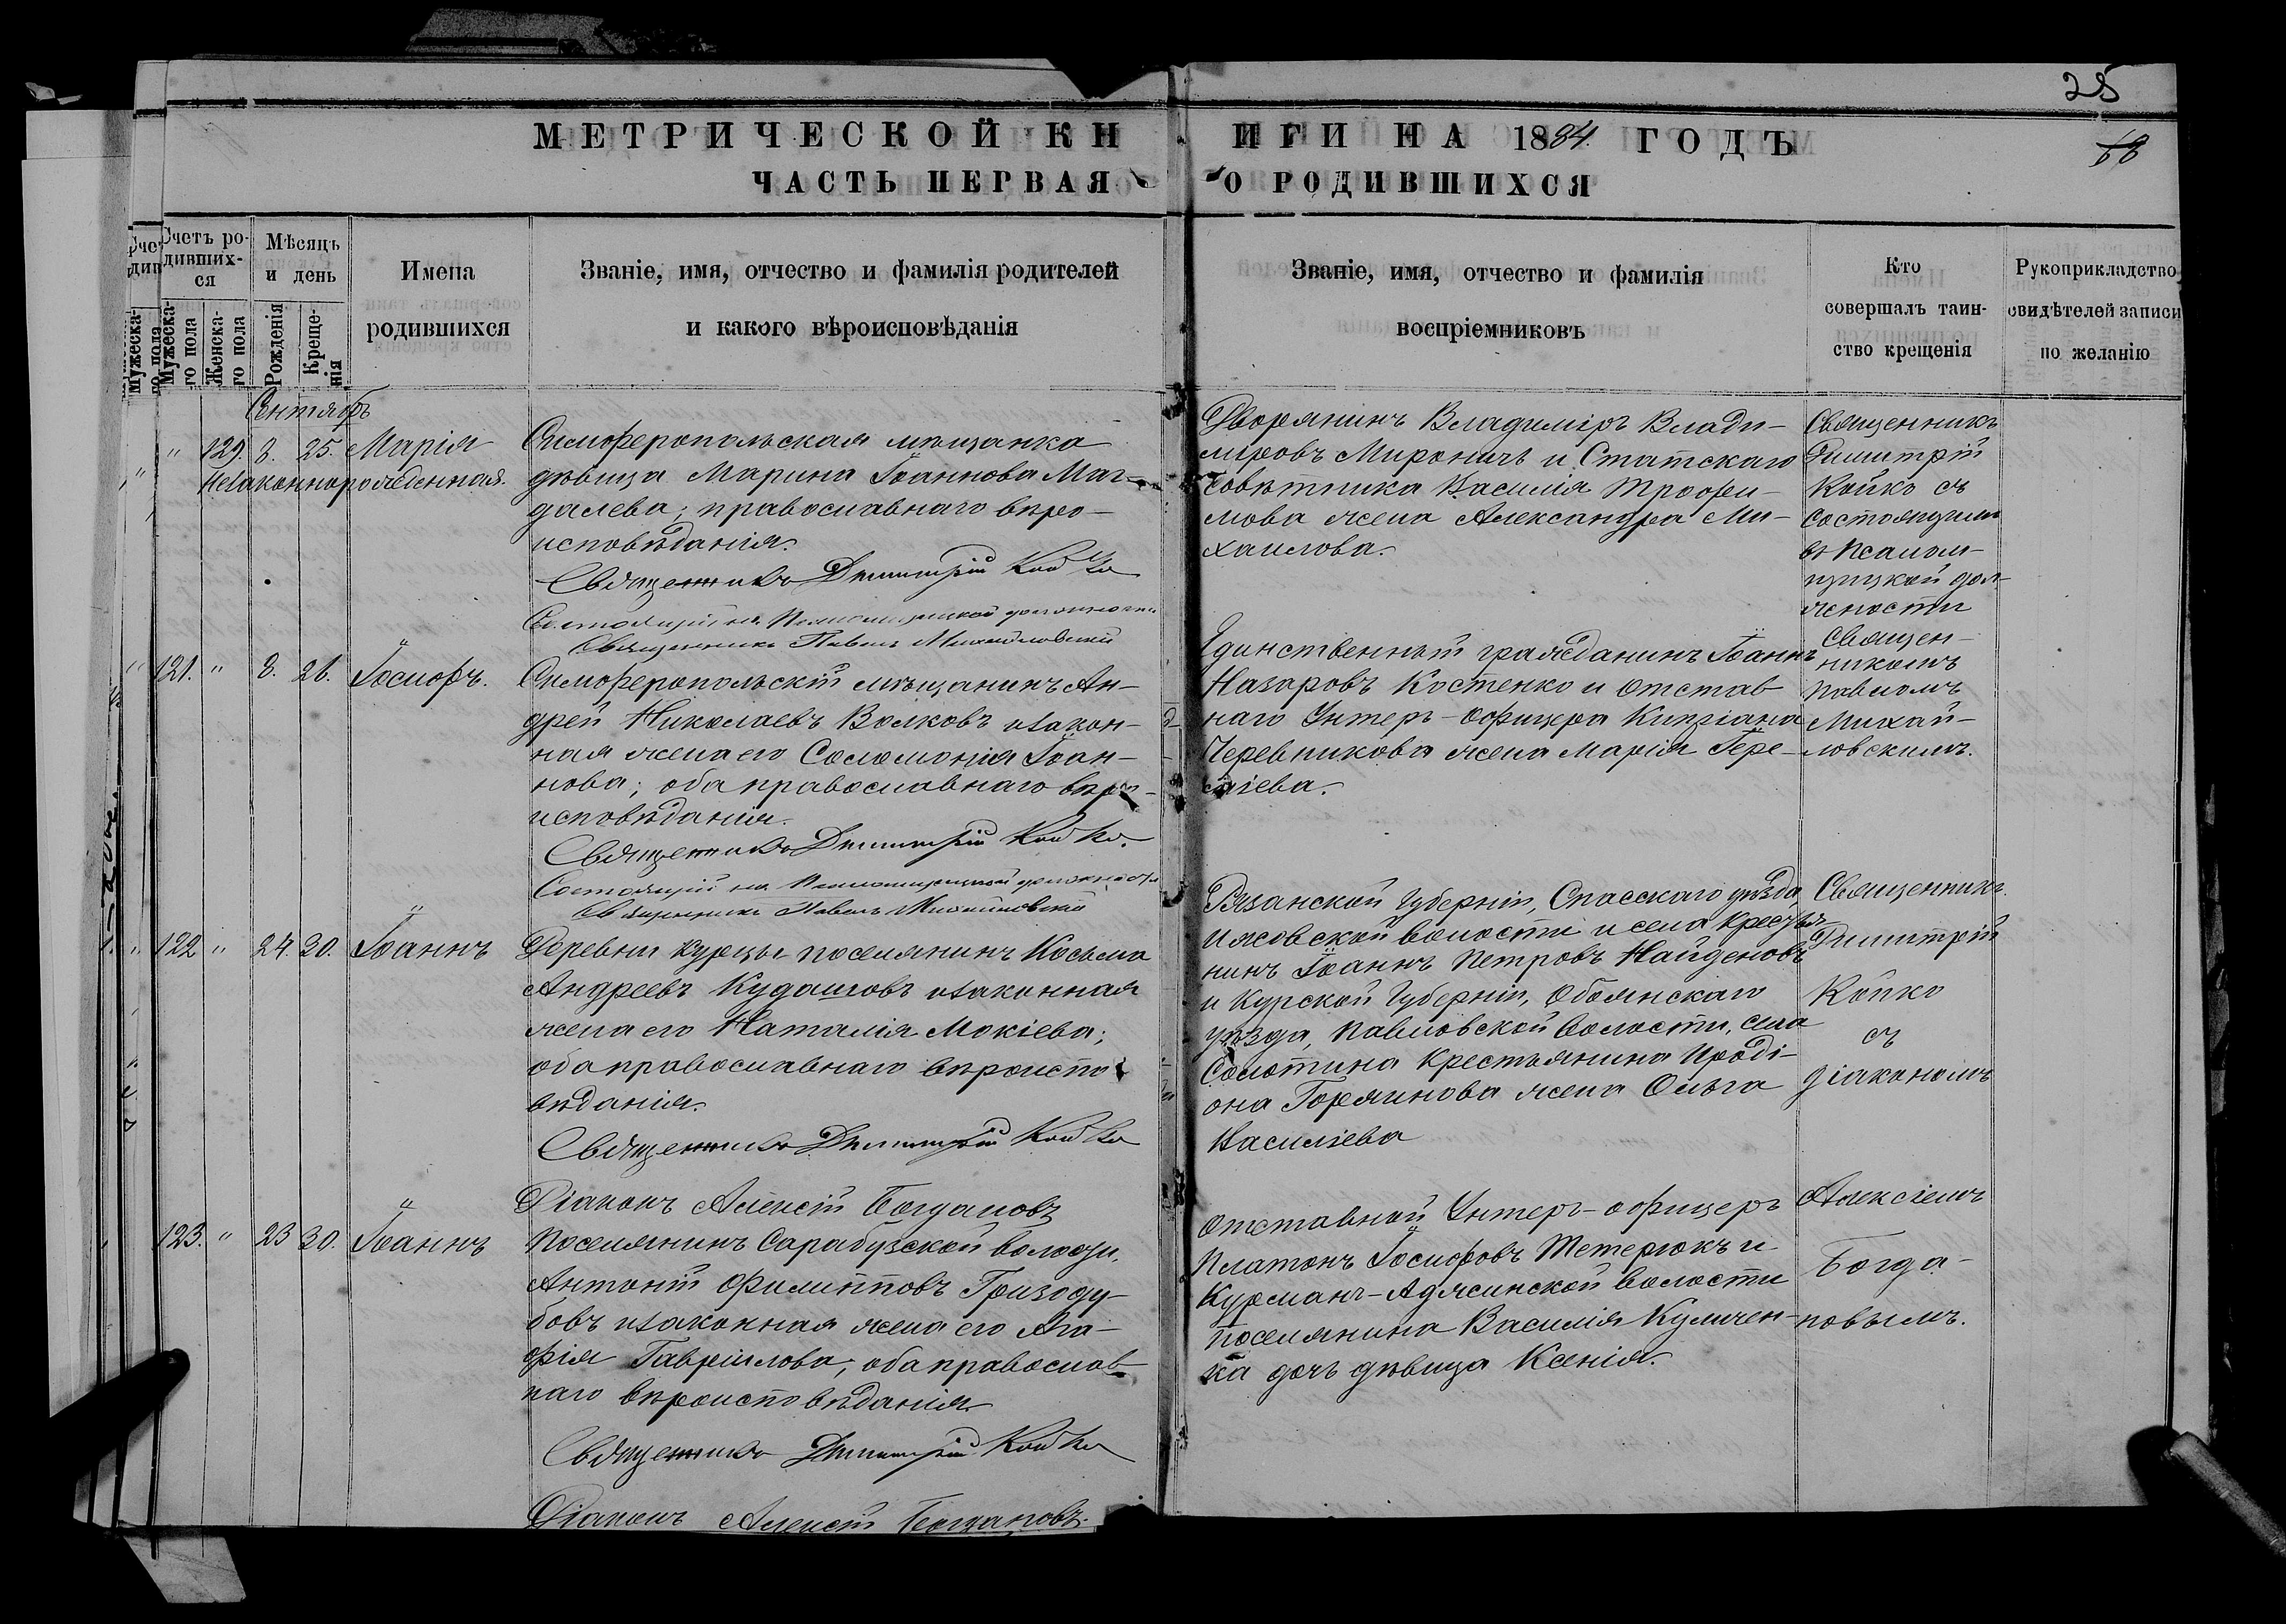 25
68
МЕТРИЧЕСКОЙ КНИГИ НА 1884. ГОДЪ
ЧАСТЬ ПЕРВАЯ О РОДИВШИХСЯ
Счетъ ро-
дивших-
ся
Мужеска-
го пола
Женска-
го пола
Мѣсяцъ
и день
Рожденія
Креще-
нія
Имена
родившихся
Званіе, имя, отчество и фамилія родителей
и какого вѣроисповѣданія
Званіе, имя, отчество и фамилія
воспріемниковъ
Кто
совершалъ таин-
ство крещенія
Рукоприкладство
свидѣтелей записи
по желанію
Сентябрь
" 129. 8. 25. Марія
Незаконнорожденная.
Симферопольская мѣщанка
дѣвица Марина Іоаннова Маг-
далева; православнаго вѣро-
исповѣданія.
Священникъ Димитрій Койко
Состоящій на Псаломщицкой должности
Священникъ Павелъ Михайловскій
Дворянинъ Владиміръ Влади-
міровъ Мироничъ и Статскаго
Совѣтника Василія Трофи-
мова жена Александра Ми-
хаилова.
Священникъ
Димитрій
Койко съ
состоящимъ
въ Псалом-
щицкой дол-
жности
Священ-
никомъ
Павломъ
Михай-
ловскимъ.
121. " 8. 26. Іосифъ.
Симферопольскій мѣщанинъ Ан-
дрей Николаевъ Волковъ и закон-
ная жена его Соломонія Іоан-
нова; оба православнаго вѣро-
исповѣданія.
Священникъ Димитрій Койко.
Состоящій на Псаломщицкой должности
Священникъ Павелъ Михайловскій
гражданинъ Іоаннъ
Назаровъ Костенко и отстав-
наго Унтеръ-офицера Кипріана
Черевпикова жена Марія Тере-
нтіева.
122 " 24. 30. Іоаннъ
Деревни Курцы поселянинъ Косьма
Андреевъ Кудашовъ и законная
жена его Наталія Мокіева;
оба православнаго вѣроиспо
вѣданія.
Священникъ Димитрій Койко
Діаконъ Алексій Богдановъ
Рязанской Губерніи, Спасскаго уѣзда,
Ижевской волости и села крестья-
нинъ Іоаннъ Петровъ Найденовъ
и Курской Губерніи, Обоянскаго
уѣзда, Павловской волости, села
Солотина крестьянина Ироді-
она Горяинова жена Ольга
Василіева
Священникъ
Димитрій
Койко
съ
діакономъ
Алексіемъ
Богда-
новымъ.
123. " 23 30. Іоаннъ
Поселянинъ Сарабузской волости,
Антоній Филипповъ Гризоду-
бовъ и законная жена его Ага-
фія Гавріилова; оба православ-
наго вѣроисповѣданія.
Священникъ Димитрій Койко
Діаконъ Алексій Богдановъ.
Отставной Унтеръ-офицеръ
Платонъ Іосифовъ Тетерюкъ и
Курманъ-Аджинской волости
поселянина Василія Куличен-
ка дочь дѣвица Ксенія.